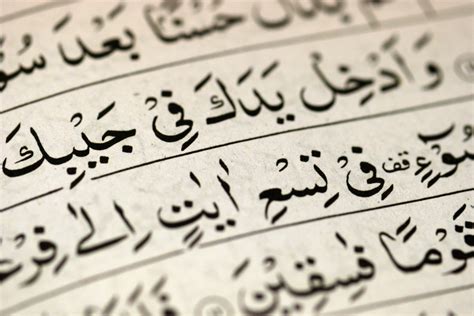 بَدَّلَ حُسْنًا بَعْدَ سُوْ
وَاَدْخِلْ يَدَكَ فِيْ جَيْبِكَ
سُوْٓءٍ قف فِيْ تِسْعِ اٰيٰتٍ اِلٰى فِرْعَ
قَوْمًا فٰسِقِيْنَ